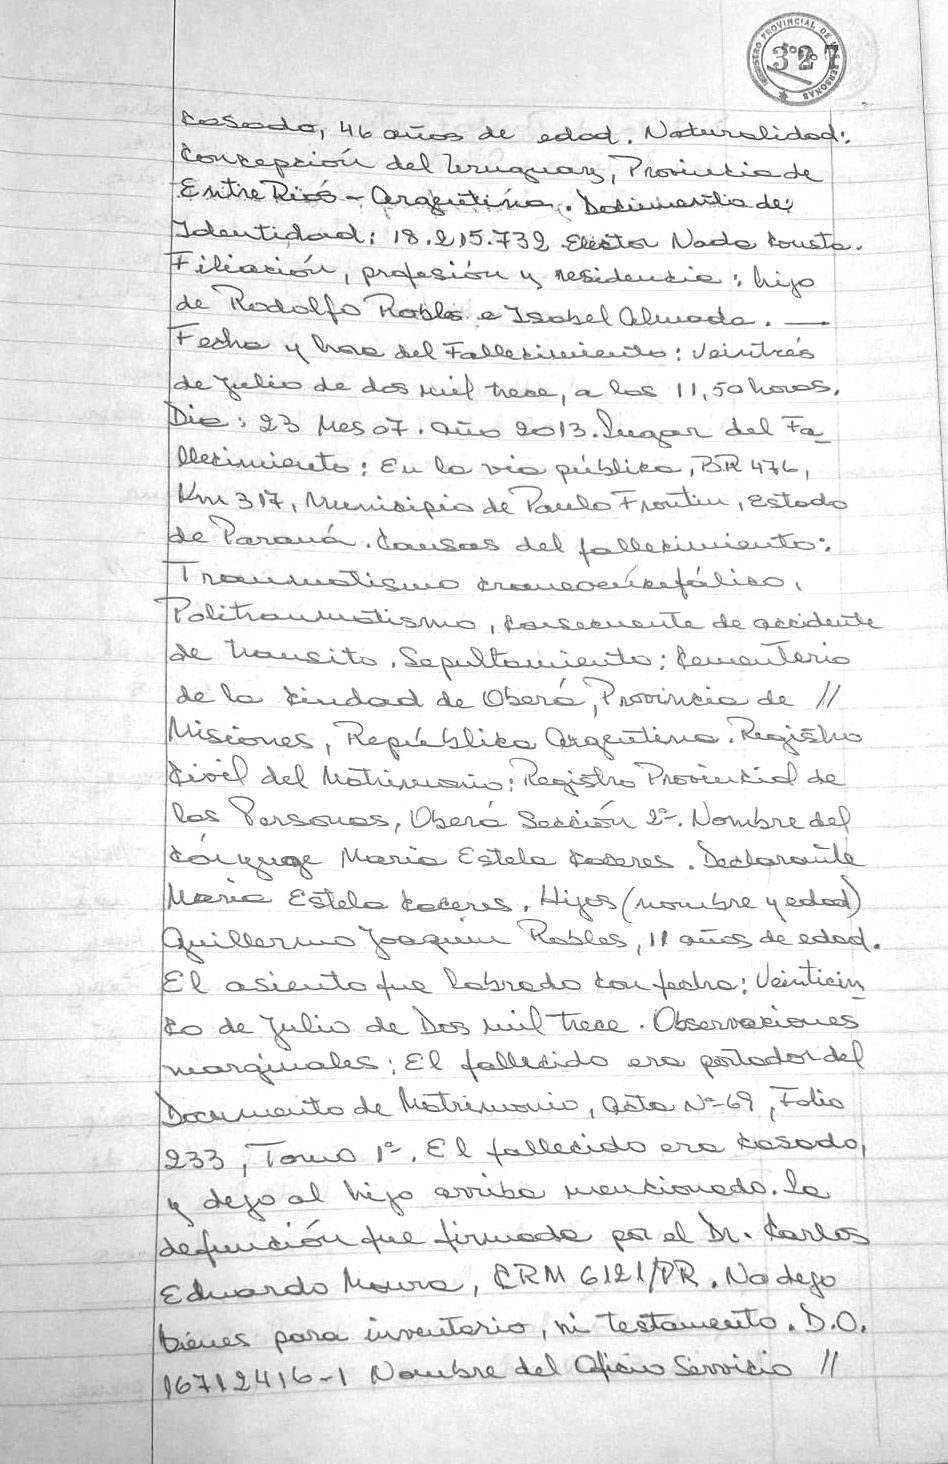 REGISTRO PROVINCIAL DE LAS PERSONAS
327
casado, 46 años de edad. Naturalidad:
Concepción del Uruguay, Provincia de
Entre Rios - Argentina. Documento de
Identidad: 18.215.732 Elector Nada Consta.
Filiación, profesión y residencia: hijo
de Rodolfo Robles e Isabel Almada. —
Fecha y hora del Fallecimiento: Veintrés
de Julio de dos mil trece, a las 11,50 horas.
Dia: 23 Mes 07. Año 2013. Lugar del Fa_
llecimiento: En la via pública, BR 476,
Km 317, Municipio de Paulo Frontin, Estado
de Paraná. Causas del fallecimiento:
Traumatismo craneoencefálico,
Politraumatismo, consecuente de accidente
de transito. Sepultamiento: Cementerio
de la Ciudad de Oberá, Provincia de //
Misiones, República Argentina. Registro
Civil del Matrimonio: Registro Provincial de
las Personas, Oberá Sección 2ª. Nombre del
Cónyuge Maria Estela Caceres. Declarante
Maria Estela Caceres. Hijos (nombre y edad)
Guillermo Joaquin Robles, 11 años de edad.
El asiento fue labrado con fecha: Veinticin_
co de Julio de Dos mil trece. Observaciones
marginales: El fallecido era portador del
Documento de Matrimonio, Acta Nº 69, Folio
233, Tomo 1º. El fallecido era casado,
y dejo al hijo arriba mencionado. La
defunción fue firmada por el Dr. Carlos
Eduardo Moura, CRM 6121/PR. No dejo
bienes para inventario, ni testamento. D.O.
16712416-1 Nombre del Oficio Servicio //